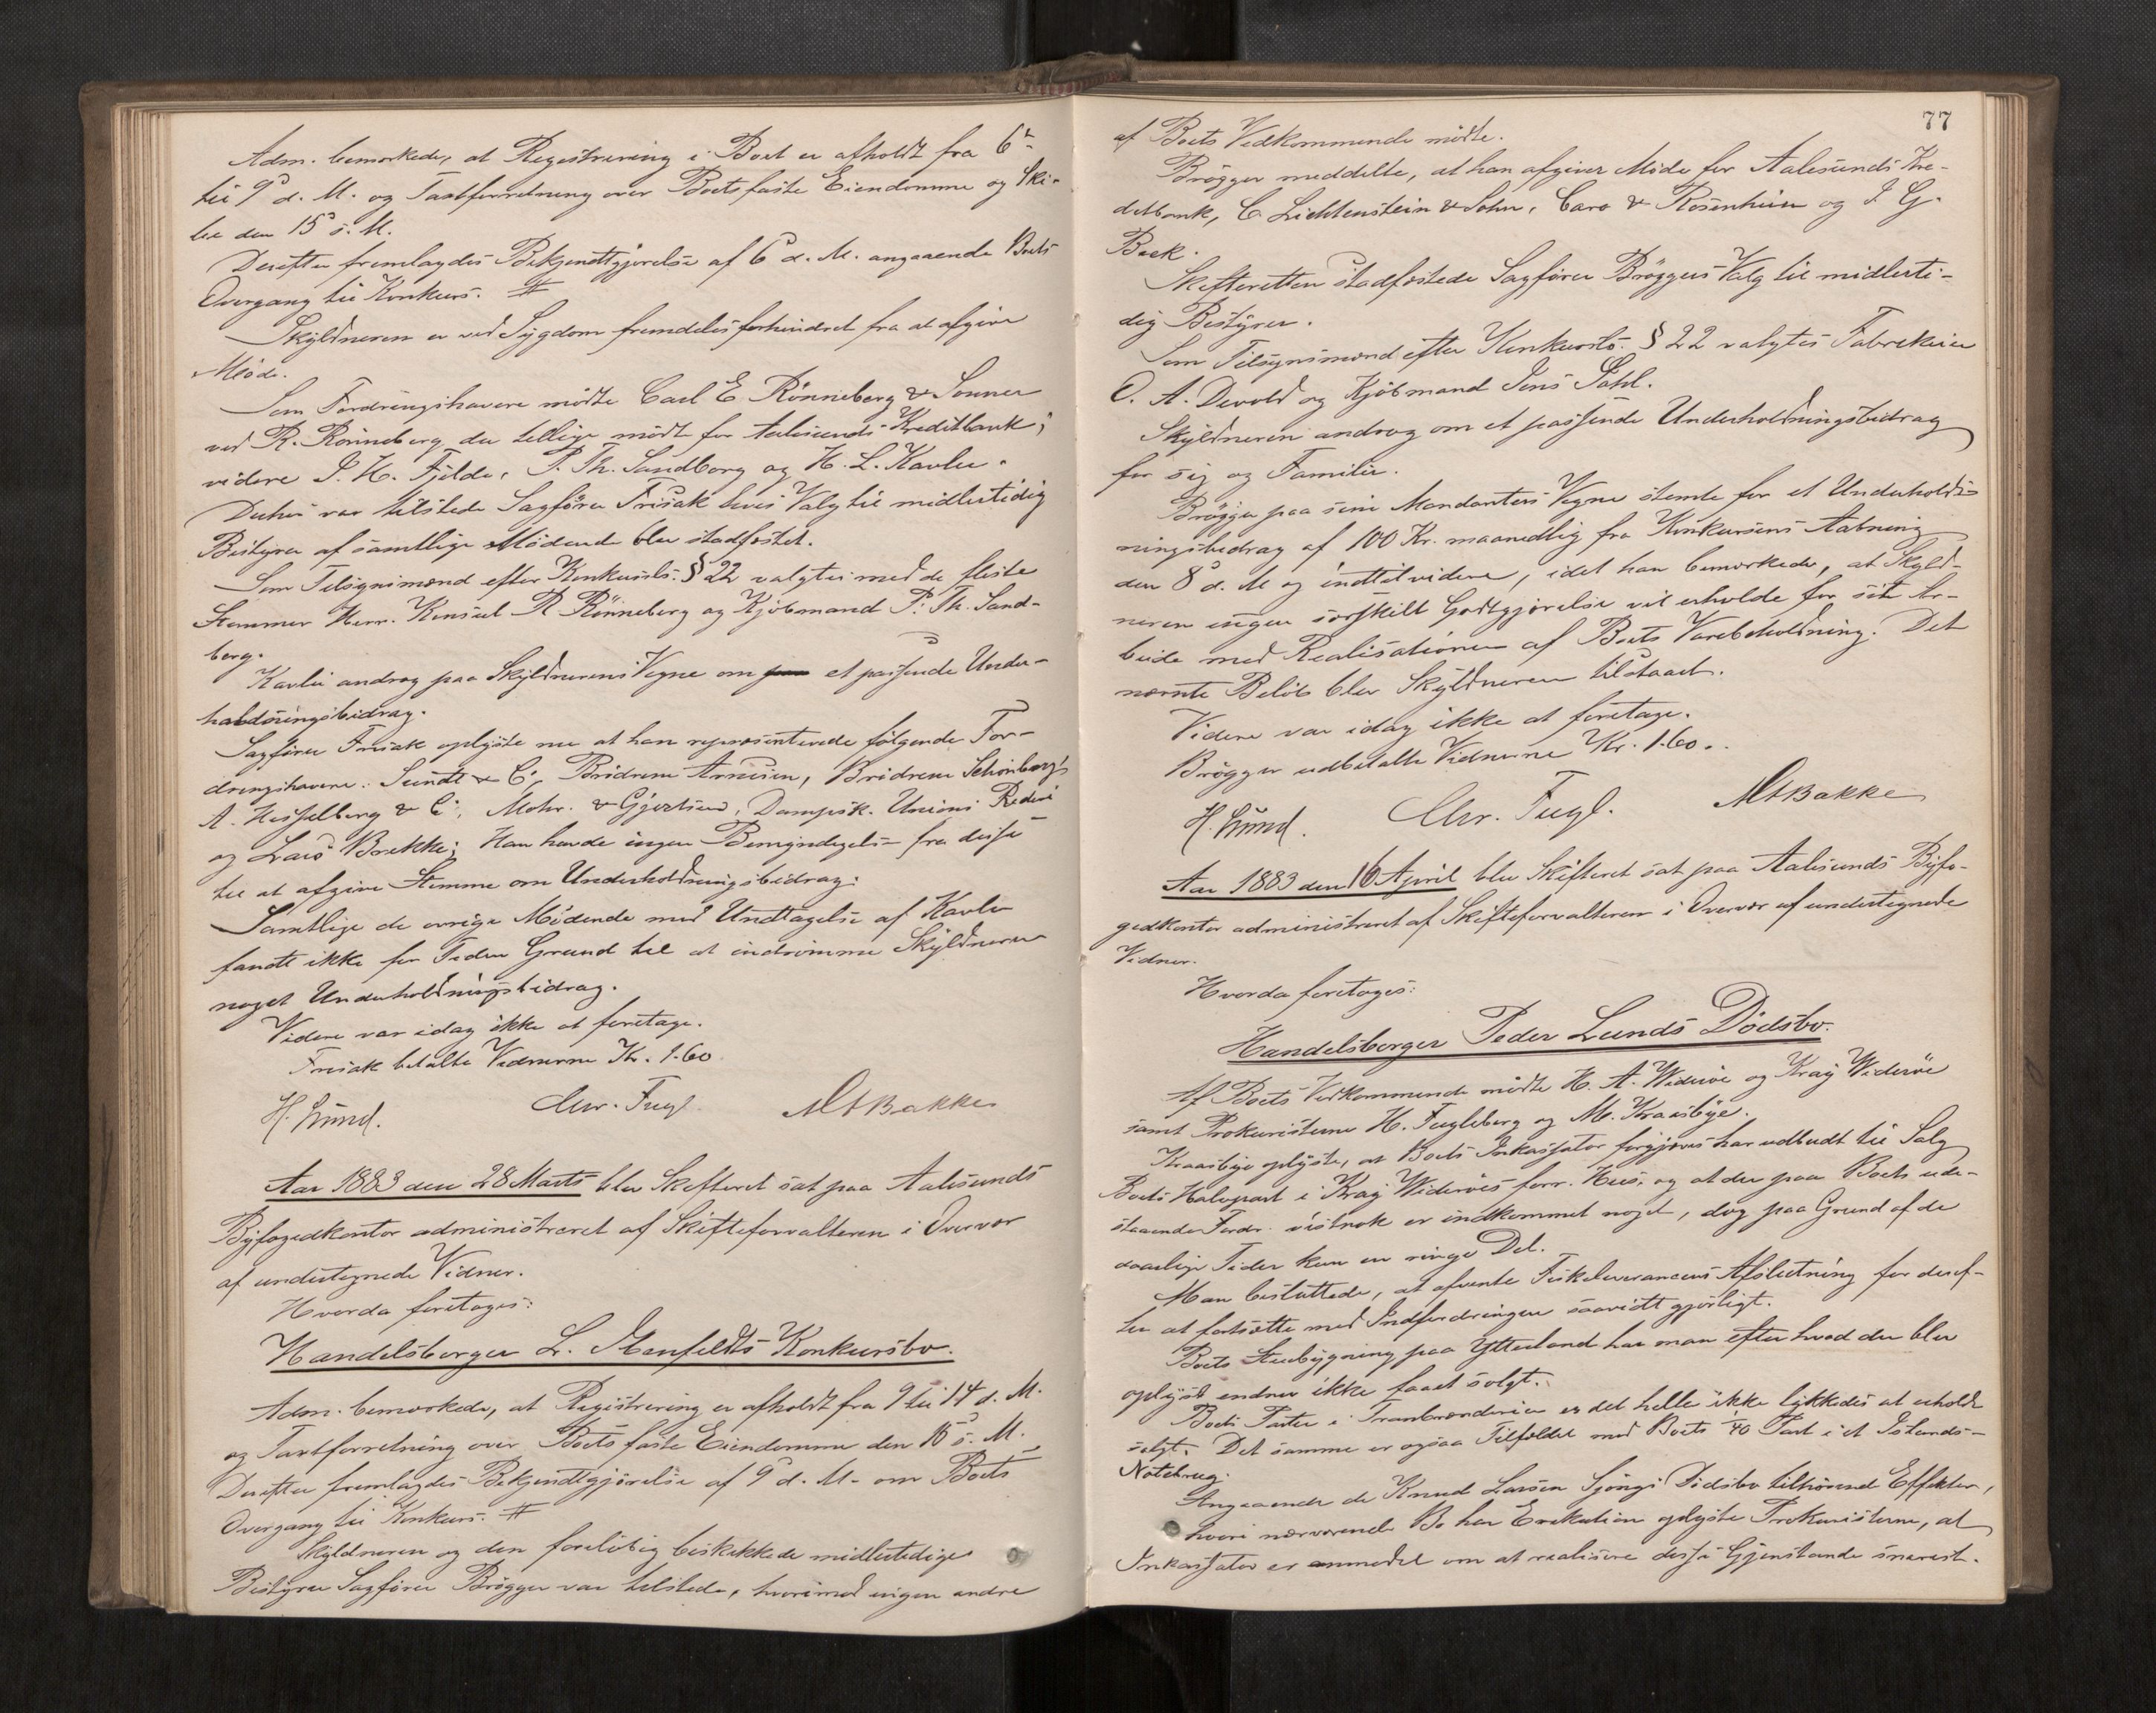 Adm. bemærkede, at Registrering i Boet er afholdt fra 6te
til 9de d. M. og Taxtforretning over Boets faste Eiendomme og Ski-
be den 15de s. M.
Derefter fremlagdes Bekjendtgjørelse af 6te d. M. angaaende Boets
Overgang til Konkurs. #
Skyldneren er ved Sygdom fremdeles forhindret fra at afgive
Møde.
Som Fordringshavere mødte Carl E. Rönneberg & Sønner
ved R. Rönneberg, der tillige mødt for Aalesunds Kreditbank;
videre P. H. Fjelde, P. Th. Sandborg og H. L. Kavlie.
Derhos var tilstede Sagfører Frisak hvis Valg til midlertidig
Bestyrer af samtlige Mødende blev stadfæstet.
Som Tilsynsmænd efter Konkursls. § 22 valgtes med de fleste
Stemmer Herr Konsul R Rönneberg og Kjøbmand P. Th. Sand-
berg.
Kavlie androg paa Skyldnerens Vegne om et passende Under-
holdningsbidrag.
Sagfører Frisak oplyste nu at han repræsenterede følgende For-
dringshavere: Sundt & Co, Brødrene Arnesen, Brødrene Schönberg,
A. Hesselberg & Co, Mohr & Gjertsen, Dampsk. Unions Rederi
og Lars Brekke; Han havde ingen Bemyndigelse fra disse
til at afgive Stemme om Underholdningsbidrag.
Samtlige de øvrige Mødende med Undtagelse af Kavlie
fandt ikke for Tiden Grund til at indrømme Skyldneren
noget Underholdningsbidrag.
Videre var idag ikke at foretage.
Frisak betalte Vidnerne Kr. 1.60
H. Lund. Chr. Fugl. MABakke
Aar 1883 den 28 Marts blev Skifteret sat paa Aalesunds
Byfogedkontor administreret af Skifteforvalteren i Overvær
af undertegnede Vidner.
Hvorda foretoges:
Handelsborger L. Menfeldts Konkursbo.
Adm. bemærkede, at Registrering er afholdt fra 9 til 14 d. M.
og Taxtforretning over Boets faste Eiendomme den 15de s. M.
Derefter fremlagdes Bekjendtgjørelse af 9de d. M. om Boets
Overgang til Konkurs. #
Skyldneren og den foreløbig beskikkede midlertidige
Bestyrer Sagfører Brögger var tilstede, hvorimod ingen andre
77
af Boets Vedkommende mødte.
Brögger meddelte, at han afgiver Møde for Aalesunds Kre-
ditbank, C. Lichtenstein & Sohn, Caro & Rosenheim og J. G.
Beck.
Skifteretten stadfæstede Sagfører Bröggers Valg til midlerti-
dig Bestyrer.
Som Tilsynsmænd efter Konkursls. § 22 valgtes Fabrikeier
O. A. Devold og Kjøbmand Jens Dahl.
Skyldneren androg om et passende Underholdningsbidrag
for sig og Familie.
Brögger paa sine Mandanters Vegne stemte for et Underhold-
ningsbidrag af 100 Kr. maanedlig fra Konkursens Aabning
den 8de d. M og indtilvidere, idet han bemærkede, at Skyld-
neren ingen særskilt Godtgjørelse vil erholde for sit Ar-
beide med Realisationen af Boets Varebeholdning. Det
nævnte Beløb blev Skyldneren tilstaaet.
Videre var idag ikke at foretage.
Brögger udbetalte Vidnerne Kr. 1.60.
H. Lund. Chr. Fugl. MABakke
Aar 1883 den 16 April blev Skifteret sat paa Aalesunds Byfo-
gedkontor administreret af Skifteforvalteren i Overvær af undertegnede
Vidner.
Hvorda foretoges:
Handelsborger Peder Lunds Dødsbo.
Af Boets Vedkommende mødte H. A. Widerøe og Krag Widerøe
samt Prokuristerne H. Fugleberg og M. Kraasbye.
Kraasbye oplyste, at Boets Inkassator forgjæves har udbudt til Salg
Boets Halvpart i Krag Widerøes forr. Hus, og at der paa Boets ude-
staaende Fordr. vistnok er indkommet noget, dog paa Grund af de
daarlige Tider kun en ringe Del.
Man besluttede, at afvente Fiskeleverancens Afslutning for deref-
ter at fortsætte med Indfordringen saavidt gjørligt.
Boets Stenbygning paa Ytterland har man efter hvad der blev
oplyst endnu ikke faaet solgt.
Boets Parter i Tranbrænderier er det heller ikke lykkedes at erholde
solgt. Det samme er ogsaa Tilfældet med Boets 1/40 Part i et Islands-
Notebrug.
Angaaende de Knud Larsen Sjongs Dødsbo tilhørende Effekter,
hvori nærværende Bo har Exekution oplyste Prokuristerne, at
Inkassator er anmodet om at realisere disse Gjenstande snarest.